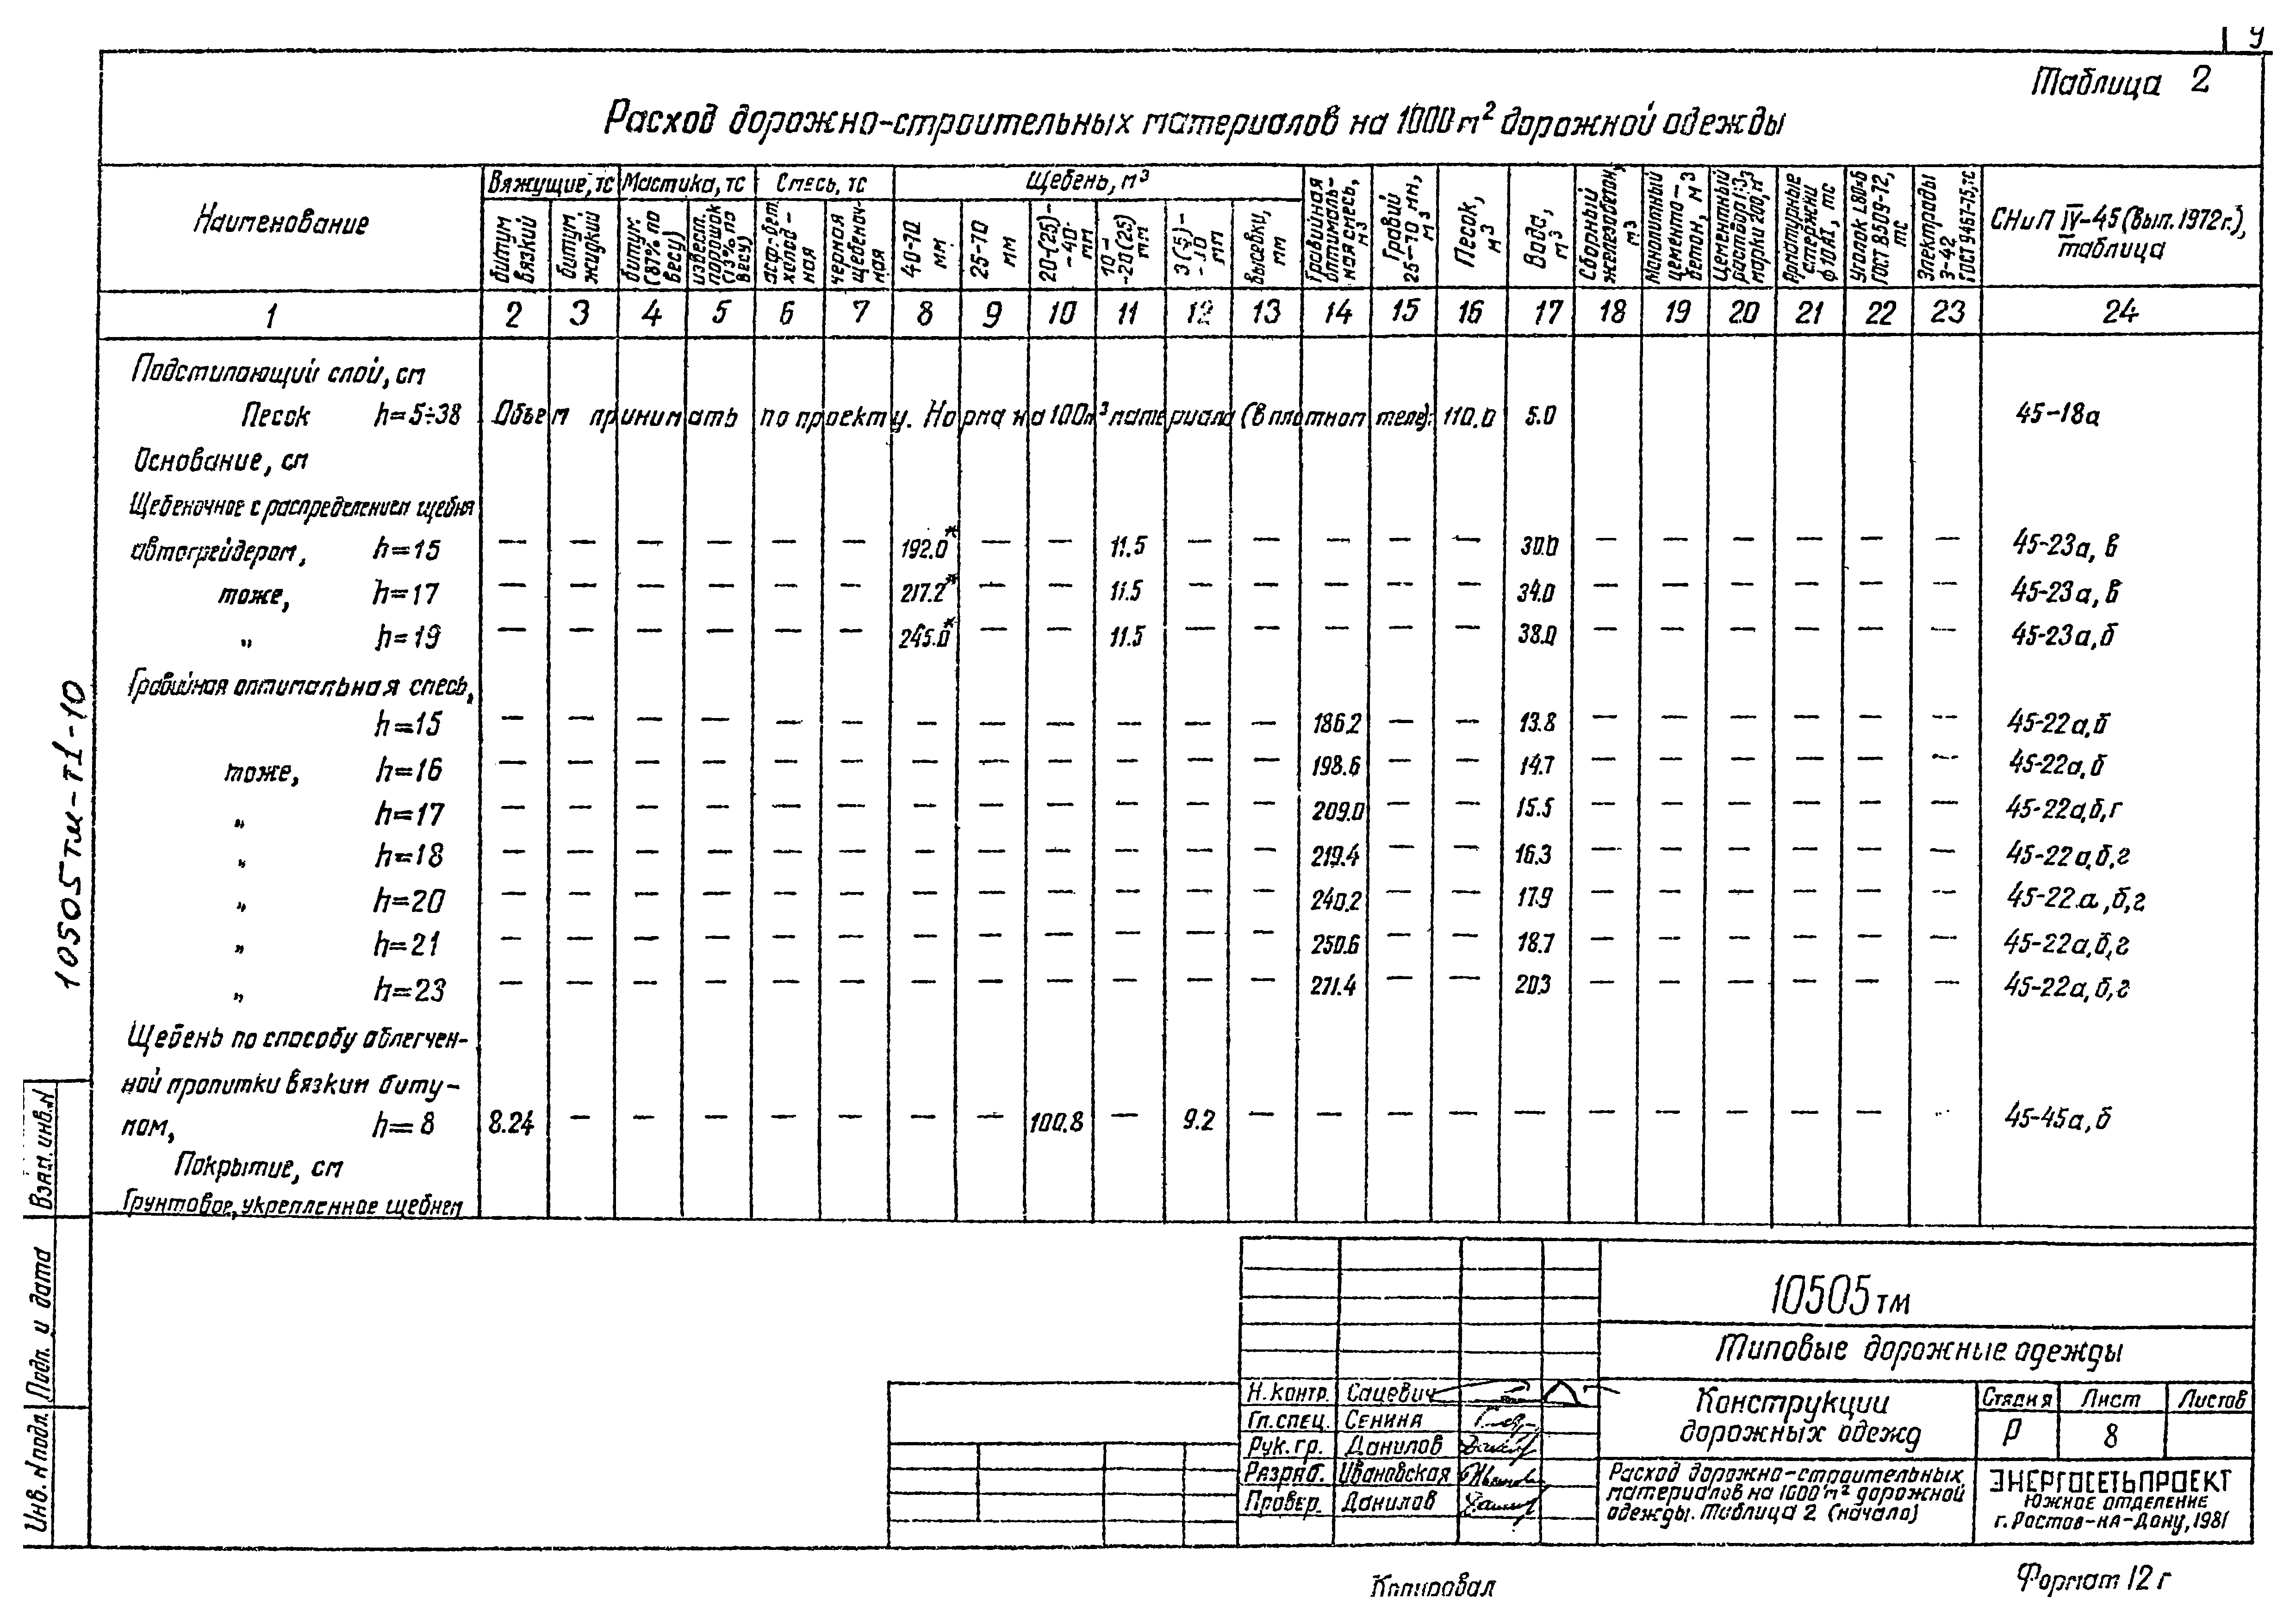 У
Таблица 2
Расход дорожно-строительных материалов на 1000 м² дорожной одежды
Наименование
Вяжущие, тс
Мастика, тс
Смесь, тс
Щебень, м³
битум вязкий
битум жидкий
битум (87% по весу)
извест. порошок (13% по весу)
асф.-бет. холод-ная
черная щебеноч-ная
40-70 мм
25-70 мм
20-(25)-40 мм
10-20(25) мм
3(5)-10 мм
Высевки, мм
Гравийная оптималь-ная смесь, м³
Гравий 25-70 мм, м³
Песок, м³
Вода, м³
Сборный железобетон, м³
Монолитный цементо-бетон, м³
Цементный раствор 1:3, марки 200, м³
Арматурные стержни ф10АI, тс
Уголок L80×6 ГОСТ 8509-72, тс
Электроды Э-42 ГОСТ 9467-75, тс
СНиП IV-45 (вып. 1972г.), таблица
1 2 3 4 5 6 7 8 9 10 11 12 13 14 15 16 17 18 19 20 21 22 23 24
Подстилающий слой, см
Песок h=5÷38 Объем принимать по проекту. Норма на 100м³ материала (в плотном теле): 110.0 5.0 45-18а
Основание, см
Щебеночное с распределением щебня
автогрейдером, h=15 — — — — — — 192.0* — — 11.5 — — — — — 30.0 — — — — — — 45-23а, в
тоже, h=17 — — — — — — 217.2* — — 11.5 — — — — — 34.0 — — — — — — 45-23а, в
„ h=19 — — — — — — 245.0* — — 11.5 — — — — — 38.0 — — — — — — 45-23а, б
Гравийная оптимальная смесь,
h=15 — — — — — — — — — — — — 186.2 — — 13.8 — — — — — — 45-22а,б
тоже, h=16 — — — — — — — — — — — — 198.6 — — 14.7 — — — — — — 45-22а,б
„ h=17 — — — — — — — — — — — — 209.0 — — 15.5 — — — — — — 45-22а,б,г
„ h=18 — — — — — — — — — — — — 219.4 — — 16.3 — — — — — — 45-22а,б,г
„ h=20 — — — — — — — — — — — — 240.2 — — 17.9 — — — — — — 45-22.а,б,г
„ h=21 — — — — — — — — — — — — 250.6 — — 18.7 — — — — — — 45-22а,б,г
„ h=23 — — — — — — — — — — — — 271.4 — — 20.3 — — — — — — 45-22а,б,г
Щебень по способу облегчен-
ной пропитки вязким биту-
мом, h=8 8.24 — — — — — — — 100.8 — 9.2 — — — — — — — — — — — 45-45а, б
Покрытие, см
Грунтовое, укрепленное щебнем
10505тм-т1-10
Взам. инв. N
Подп. и дата
Инв. N подл.
10505тм
Типовые дорожные одежды
Н. контр. Сацевич
Гл. спец. Сенина
Рук. гр. Данилов
Разраб. Ивановская
Провер. Данилов
Конструкции
дорожных одежд
Стадия Лист Листов
Р 8
Расход дорожно-строительных
материалов на 1000 м² дорожной
одежды. Таблица 2 (начало)
ЭНЕРГОСЕТЬПРОЕКТ
Южное отделение
г. Ростов-на-Дону, 1981
Копировал
Формат 12г